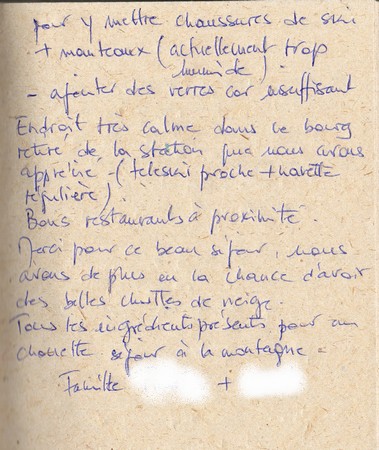 pour y mettre chaussures de ski
+ manteaux (actuellement trop
humide).
- ajouter des verres car insuffisant
Endroit très calme dans ce bourg
retiré de la station que nous avons
apprécié - (téléski proche + navette
régulière).
Bons restaurants à proximité.
Merci pour ce beau séjour, nous
avons de plus eu la chance d'avoir
des belles chutes de neige.
Tous les ingrédients présents pour un
chouette séjour à la montagne =
Famille +